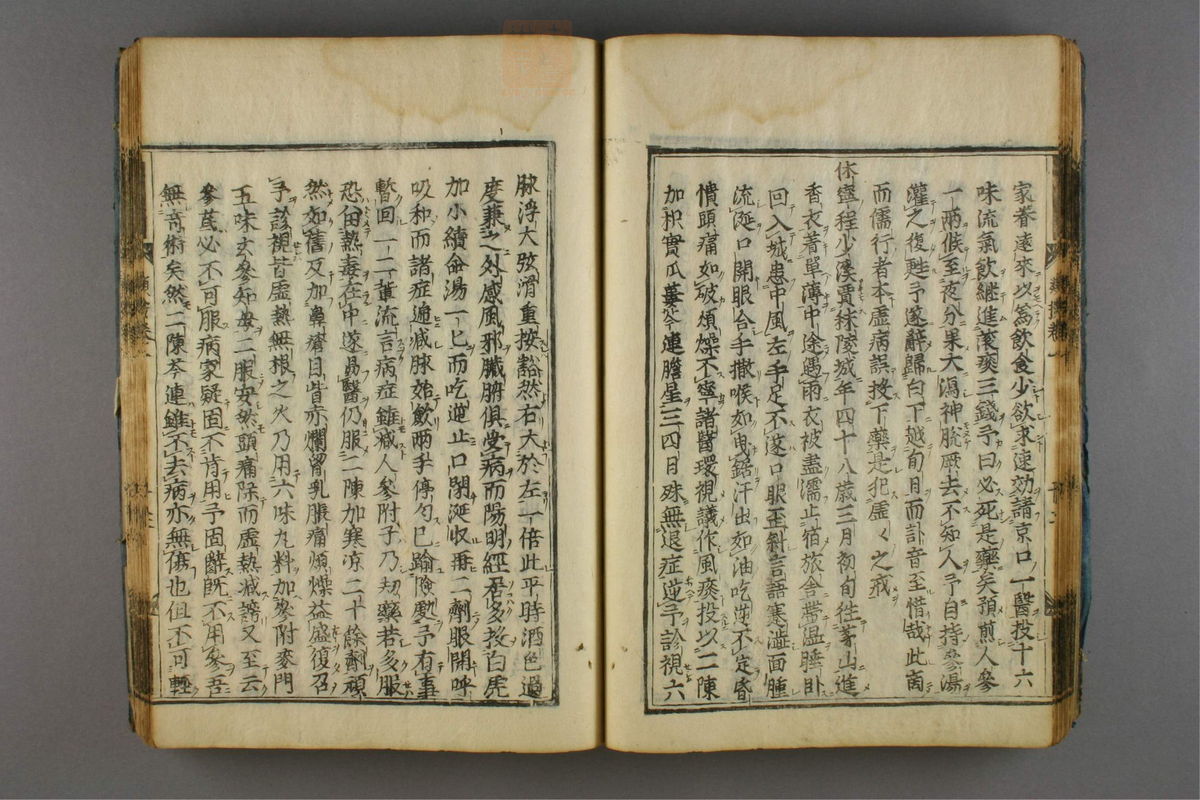 家眷遠來以爲飲食少欲求速効請京口一醫投十六
味流氣飲継進滾痰三錢予曰必死是藥矣預煎人參
一兩候至夜分果大瀉神脫厥去不知人予自持參湯
灌之復甦予遂辭歸白下越旬日而訃音至惜哉此啇
而儒行者本虚病誤投下藥是犯虚々之戒
休寧程少溪賈秣陵城年四十八歳三月初旬徃茅山進
香衣着單薄中途遇雨衣被盡濡止宿旅舎帶温睡卧
回入城患中風左手足不遂口眼歪斜言語蹇澁面腫
流涎口開眼合手撒喉如曳鋸汗出如油吃逆不定昏
憒頭痛如破煩燥不寧諸醫環視議作風痰投以二陳
加枳實瓜蔞芩連膽星三四日殊無退症逆予診視六
脉浮大弦滑重按豁然右大於左一倍此平時酒色過
度兼之外感風邪臓腑俱受病而陽明經居多投白虎
加小續命湯一匕而吃逆止口閉涎収再二劑服開呼
吸和而諸症逓减脉始歛两手停匀已踰險處予有事
暫回一二輩流言病症雖减人參附子乃刼藥若多服
恐留熱毒在中遂易醫仍服二陳加寒凉二十餘劑頑
然如舊反加鼻癢目眥赤爛胷乳脹痛煩燥益盛復召
予診視皆虚熱無根之火乃用六味丸料加參附麥門
五味玄參知母二服安然頭痛除而虚熱减謗又至云
參茋必不可服病家疑固不肯用予固辭既不用參吾
無奇術矣然二陳芩連雖不去病亦無傷也但不可輕